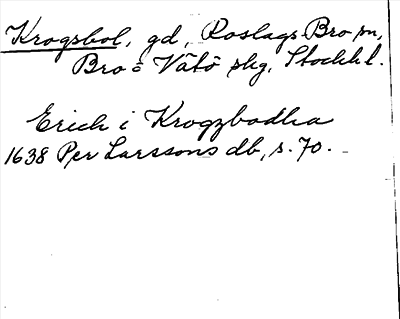 Krogsbol, gd, Roslags-Bro sn,
Bro o Vätö skg, Stockh l.
Erich i Krogzbodha
1638 Per Larssons db, s. 70.